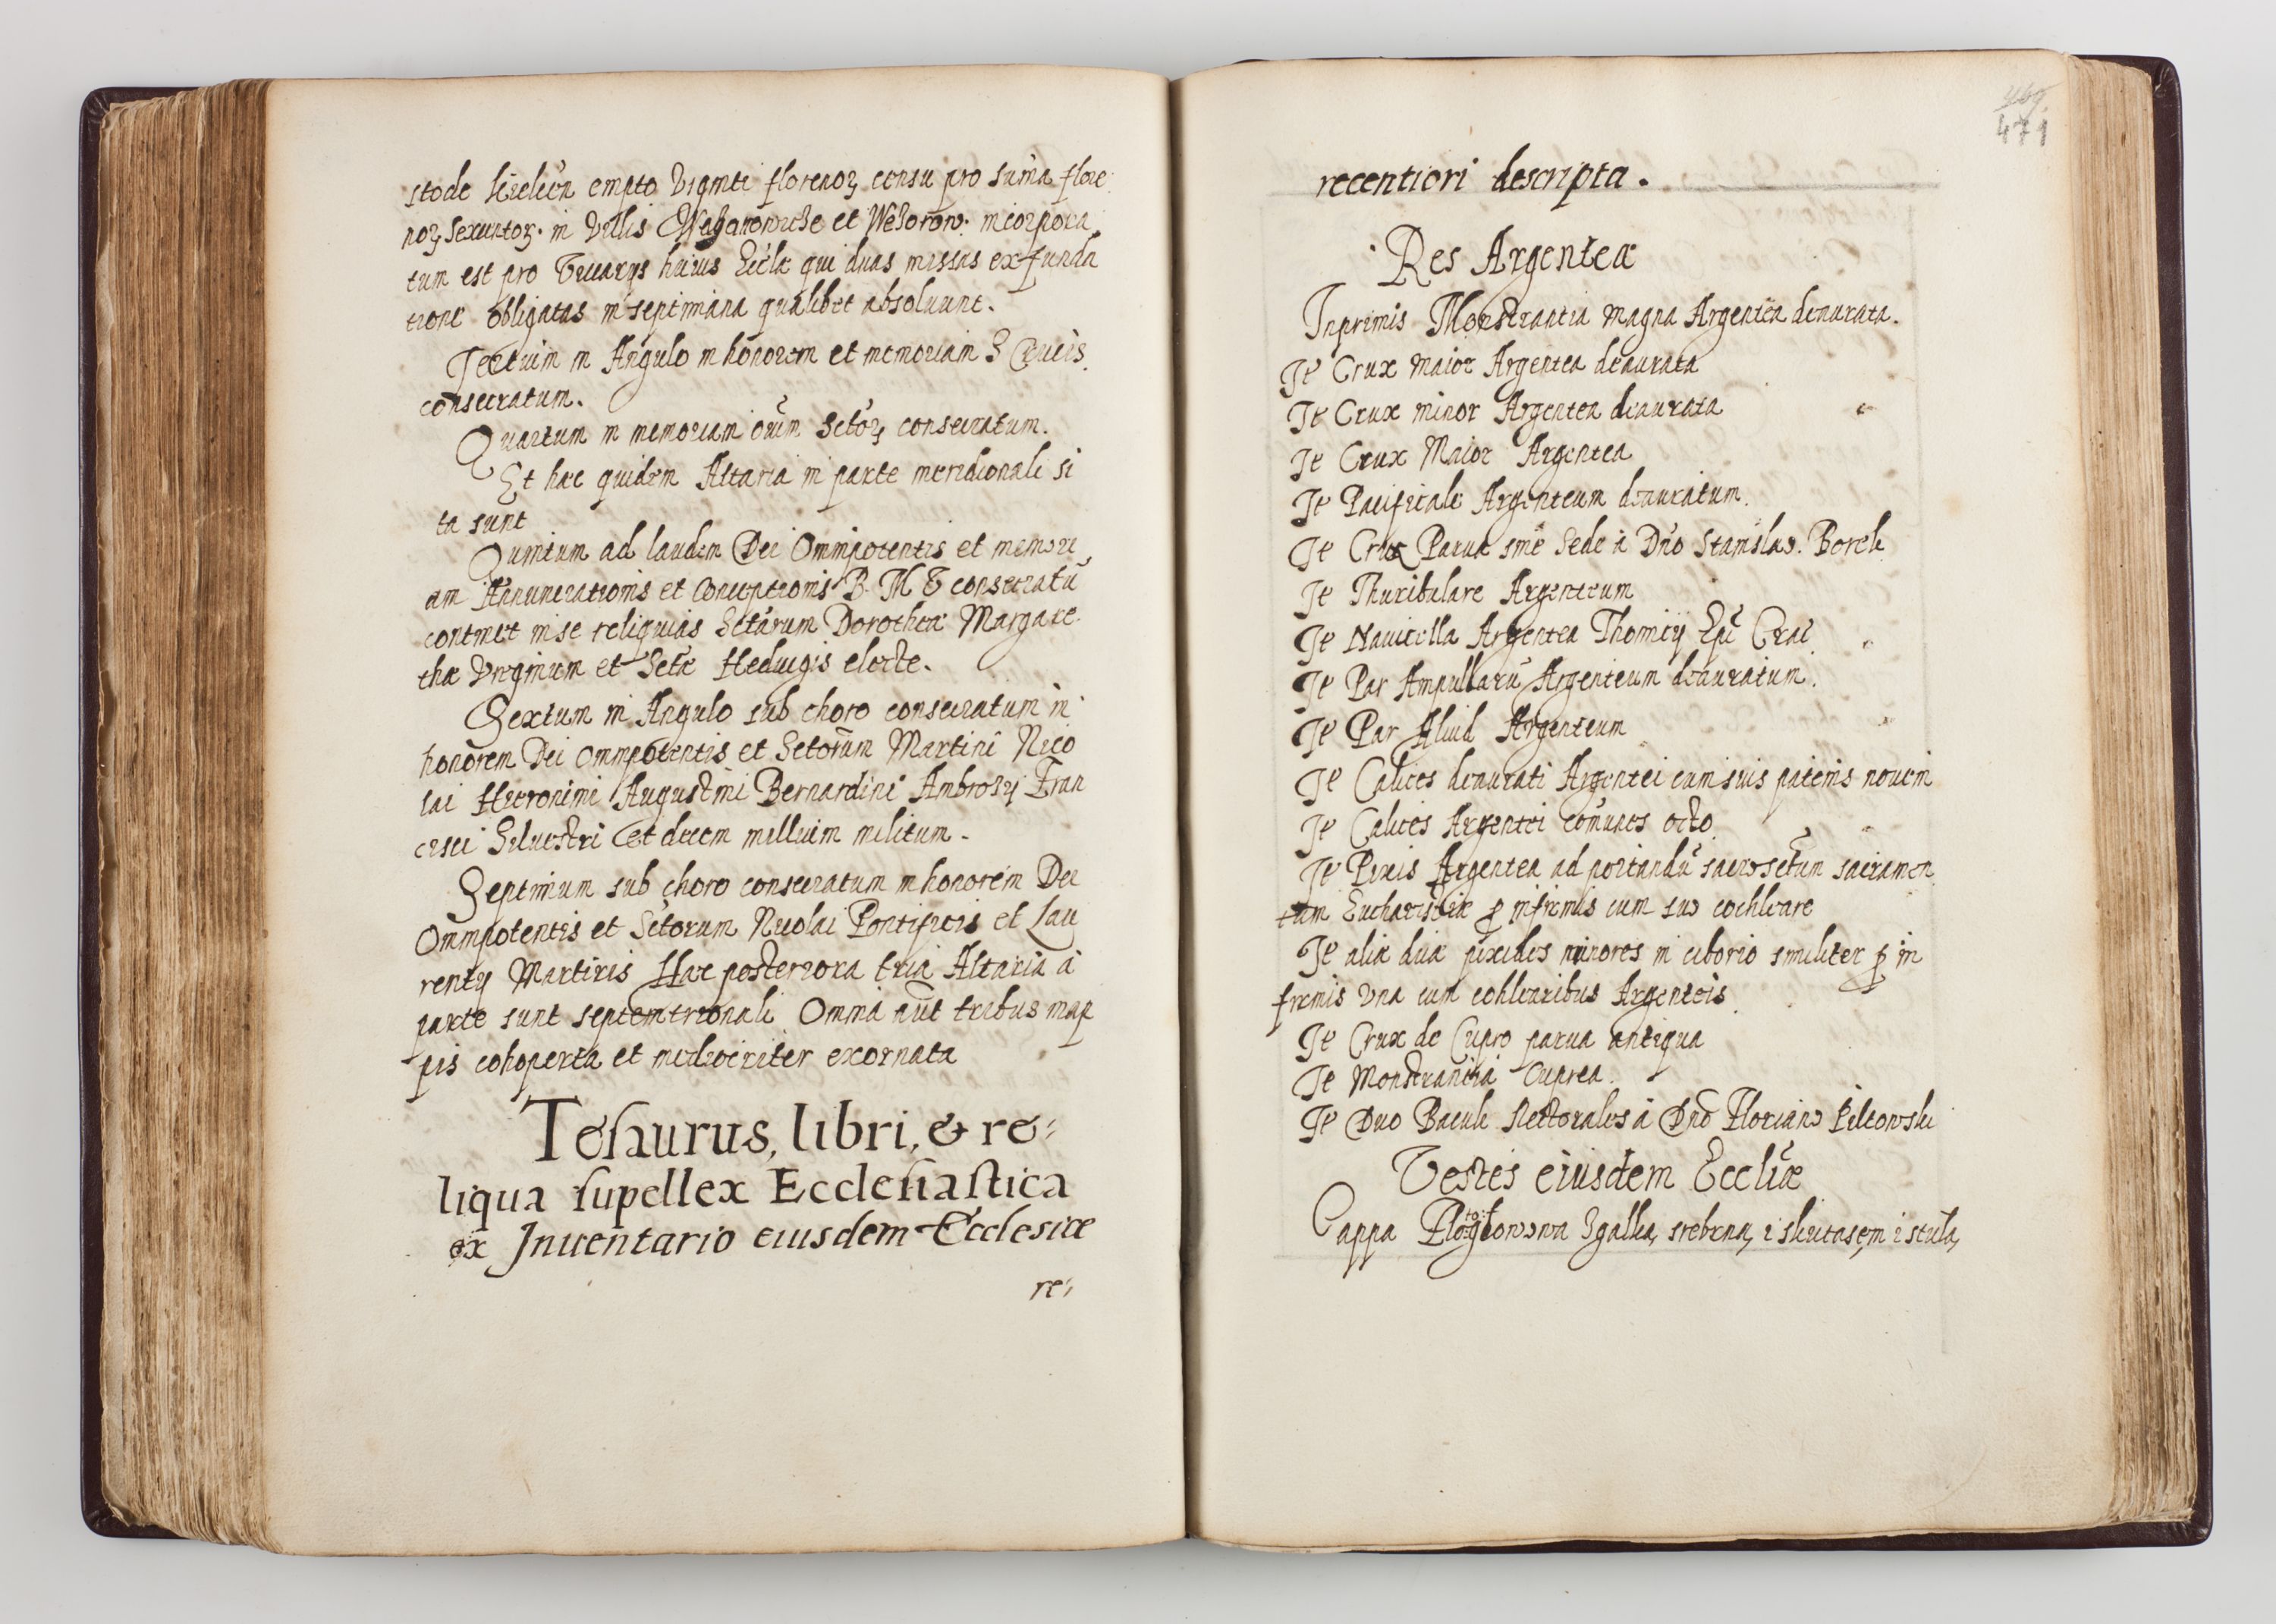 stode Kielcen empto viginti florenoꝝ censu pro suma flore
noꝝ sexcentoꝝ. in villis et incorpora
tum est pro Vicarys huius Eccle qui duas missas ex funda
tione obligatas in septimana qualibet absoluunt.
Tertium in Angulo in honorem et memoriam S Crucis
consecratum.
Quartum in memoriam oium Sctoꝝ consecratum.
Et hæc quidem Altaria in parte meridionali si
ta sunt
Quintum ad laudem Dei Omnipotentis et memori
am Annunciationis et Conceptionis B. M. V consecratū
continet in se reliquias Sctarum Dorotheæ Margare
thæ Virginum et Sctæ Heduigis electe.
Sextum in Angulo sub choro consecratum in
honorem Dei omnipotentis et Sctorum Martini Nico
lai Hieronimi Augustini Bernardini Ambrosy Fran
cisci Siluestri et decem millium militum.
Septimum sub choro consecratum in honorem Dei
Omnipotentis et Sctorum Nicolai Pontificis et Lau
renty Martiris Hæc posteriora tria Altaria à
parte sunt septemtrionali Omnia aūt tribus map
pis cohoperta et mediocriter exornata
Tesaurus, libri, & re=
liqua supellex Ecclesiastica
ex Inuentario eiusdem Ecclesiæ
re=
471
recentiori descripta.
Res Argenteæ
Inprimis Monstrantia magna Argentea deaurata.
Jt Crux maior Argentea deaurata
Jt Crux minor Argentea deaurata
Jt Crux Maior Argentea
Jt Pacificale Argenteum deauratum.
Jt Crux Parua sine Sede à Dno Stanislao. Borek
Jt Thuribulare Argenteum
Jt Nauicella Argentea Thomicy Epi Crac.
Jt Par Ampullarū Argenteum deauratum.
Jt Par Aliud Argenteum
Jt Calices deaurati Argentei cum suis patenis nouem
Jt Calices Argentei comunes octo
Jt Pixis Argentea ad portandū sacrosctum sacramen
tum Eucharistiæ ꝓ infirmis cum suo cochleare
Jt aliæ duæ pixides minores in ciborio similiter ꝓ in
firmis vna cum cohlearibus Argenteis.
Jt Crux de Cupro parua antiqua
Jt Monstrantia Cuprea.
Jt Duo Baculi Rectorales à Dno Floriano
Vestes eiusdem Eccliæ
Cappa Zgałką srebrną, i stułą,